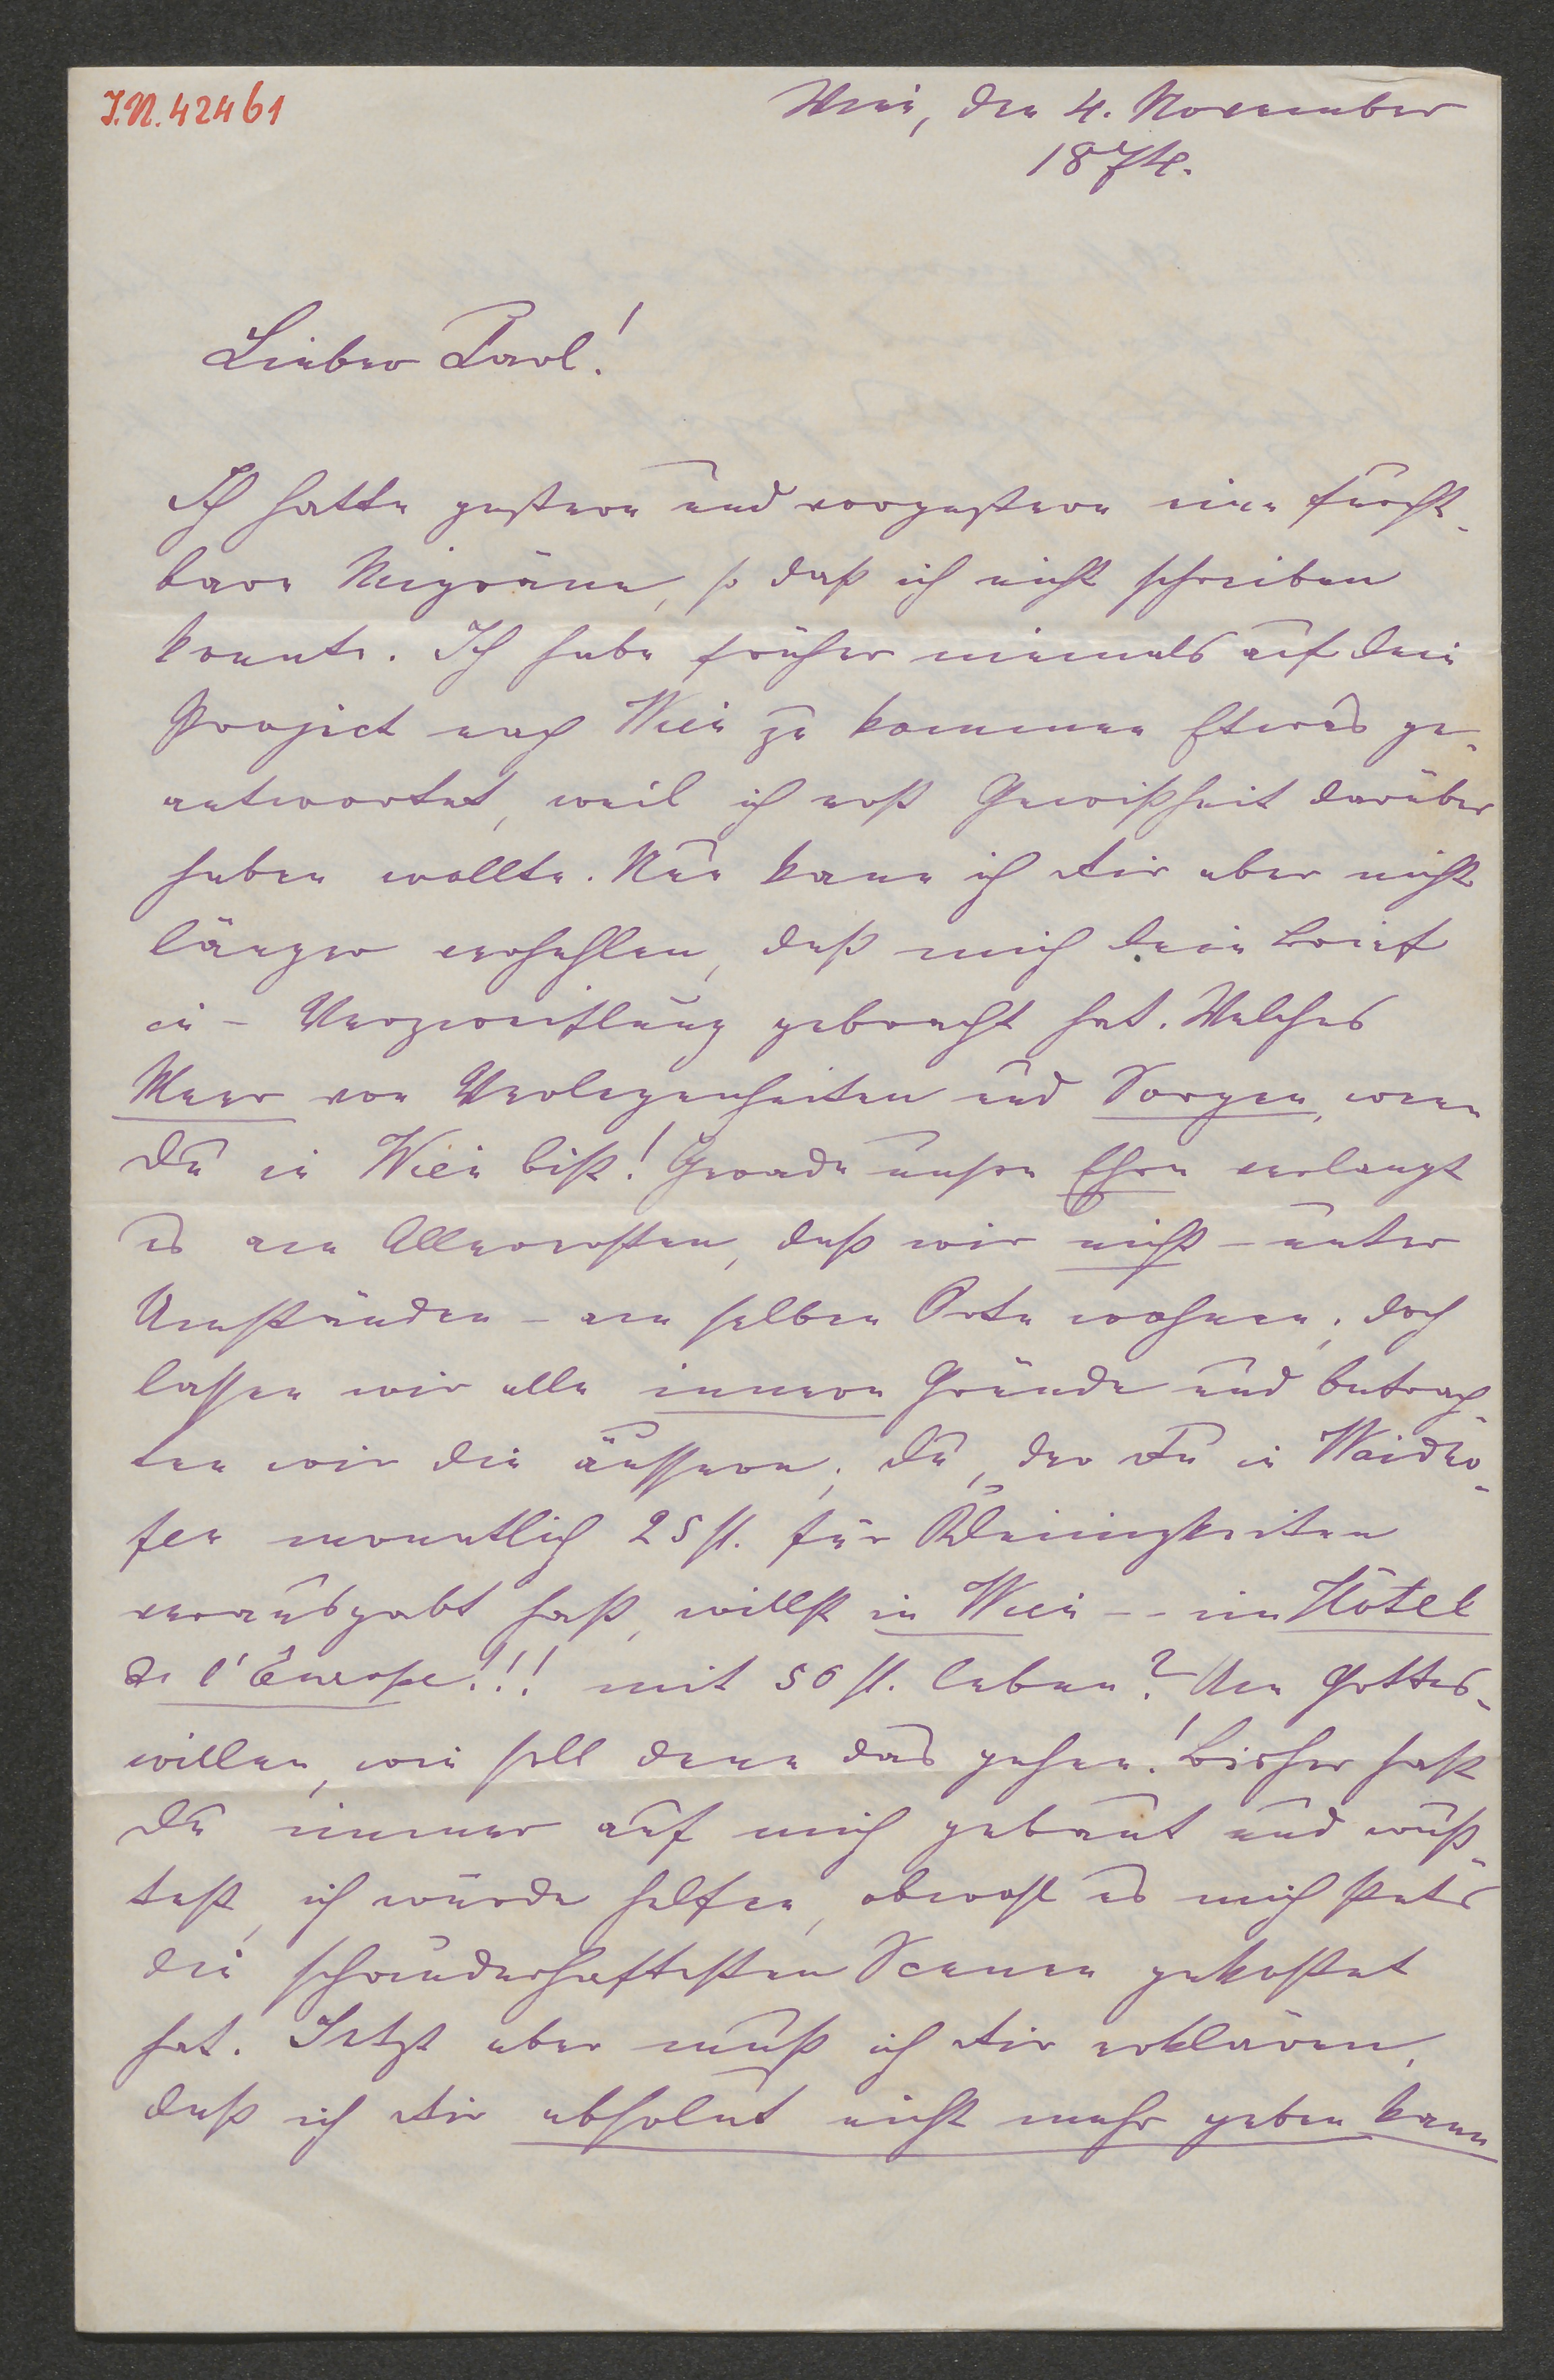 I.N. 42461
Wien, den 4. November
1874.
Lieber Carl!
Ich hatte gestern und vorgestern eine furcht-
bare Migräne, so daß ich nicht schreiben
konnte. Ich habe früher niemals auf dein
Project nach Wien zu kommen Etwas ge-
antwortet, weil ich erst Gewißheit darüber
haben wollte. Nun kann ich Dir aber nicht
länger verhehlen, daß mich dein Brief
in – Verzweiflung gebracht hat. Welches
Meer von Verlegenheiten und Sorgen, wenn
du in Wien bist! Gerade unsre Ehre verlangt
es am Allerersten, daß wir nicht – unter
Umständen – am selben Orte wohnen; doch
lassen wir alle innern Gründe und betrach-
ten wir die äussern; du, der Du in Waidho-
fen monatlich 25 fl. für Kleinigkeiten
verausgabt hast, willst in Wien -- im Hôtel
de l'Europe!!! mit 50 fl. leben? Um Gottes-
willen, wie soll denn das gehen! Bisher hast
du immer auf mich gebaut und wuß-
test, ich würde helfen, obwohl es mich stets
die schauderhaftesten Scenen gekostet
hat. Jetzt aber muß ich Dir erklären,
daß ich Dir absolut nicht mehr geben kann